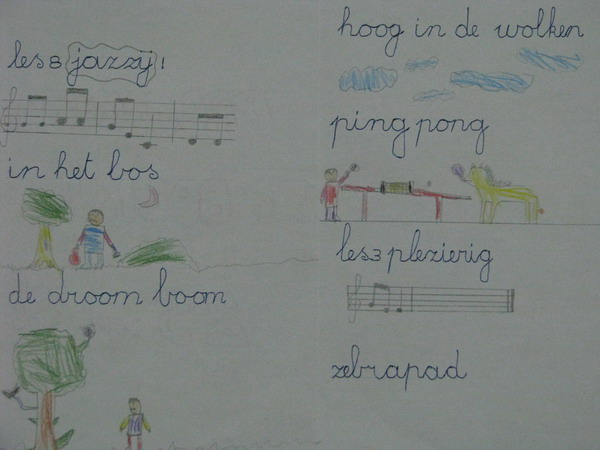 les 8 jazzij!
in het bos
de droom boom
hoog in de wolken
ping pong
les 3 plezierig
zebrapad